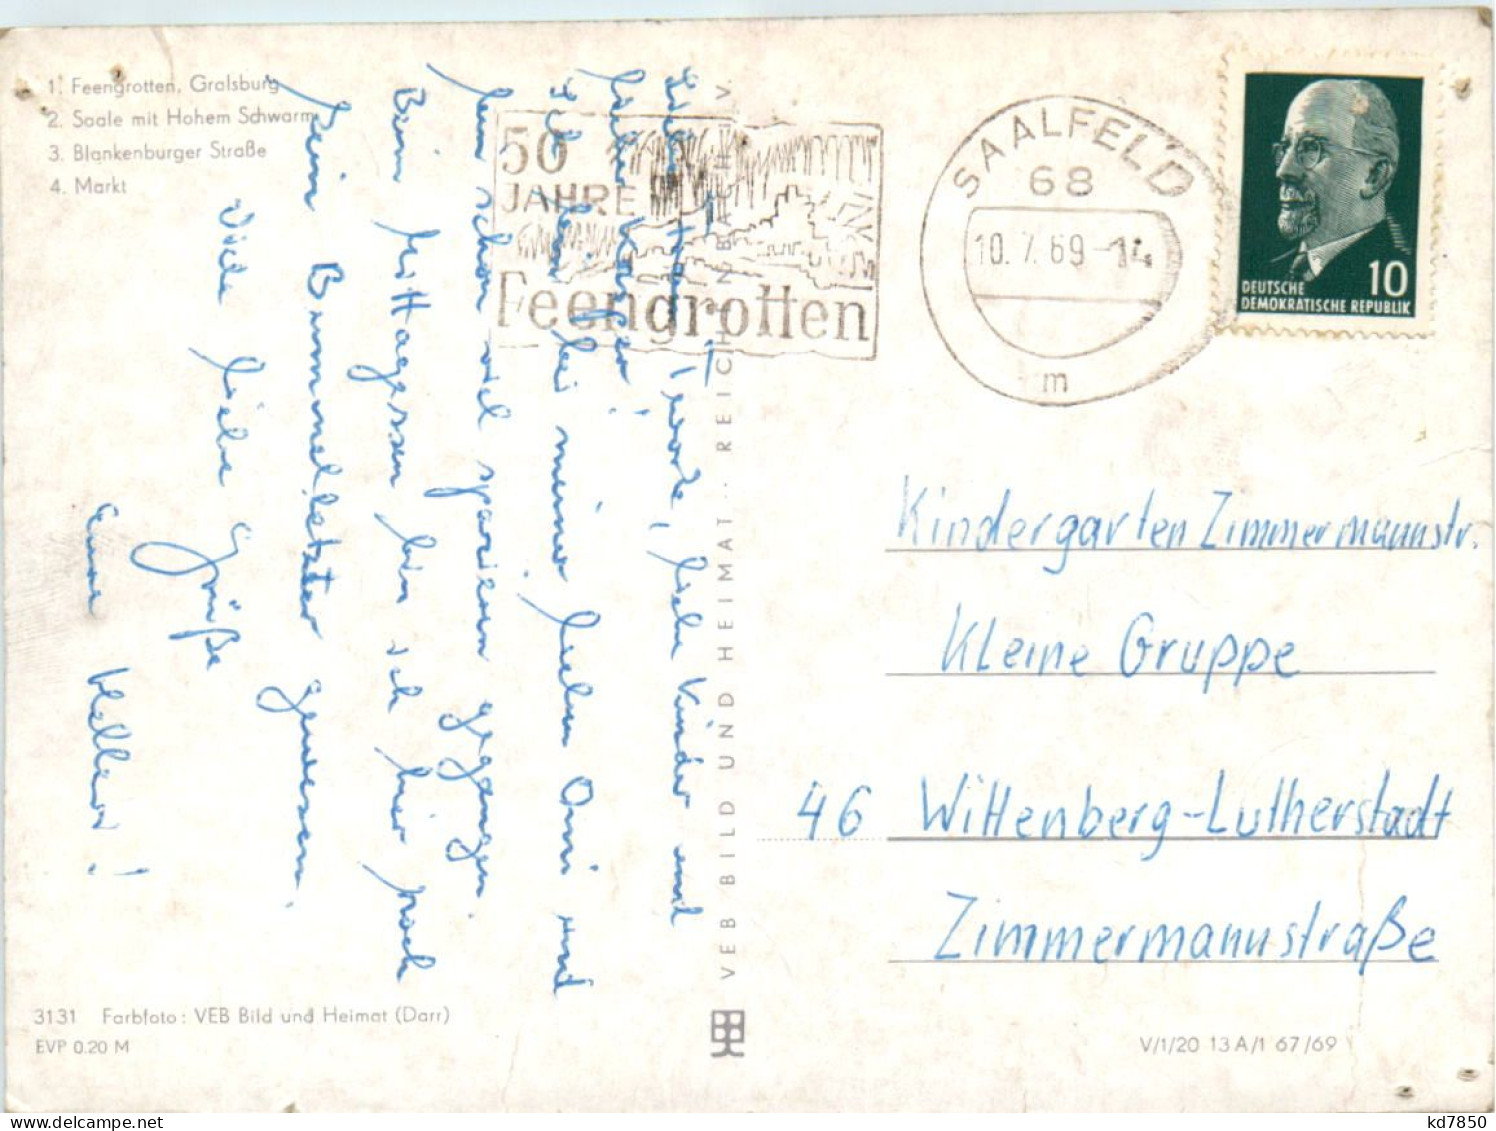 1. Feengrotten, Gralsburg
2. Saale mit Hohem Schwarm
3. Blankenburger Straße
4. Markt
50
JAHRE
Feengrotten
SAALFELD
68
10.7.69-14
m
DEUTSCHE
DEMOKRATISCHE REPUBLIK
10
liebe Kinder und
liebe Käfer!
Ich bin bei meiner lieben Omi und
bin schon viel spazieren gegangen.
Beim Mittagessen bin ich hier noch
kein Bummelletzter gewesen.
Viele liebe Grüße
VEB BILD UND HEIMAT REICHENBACH I. V.
Kindergarten Zimmermannstr.
Kleine Gruppe
46 Wittenberg-Lutherstadt
Zimmermannstraße
3131 Farbfoto: VEB Bild und Heimat (Darr)
EVP 0.20 M
V/1/20 13 A/1 67/69
kd7850